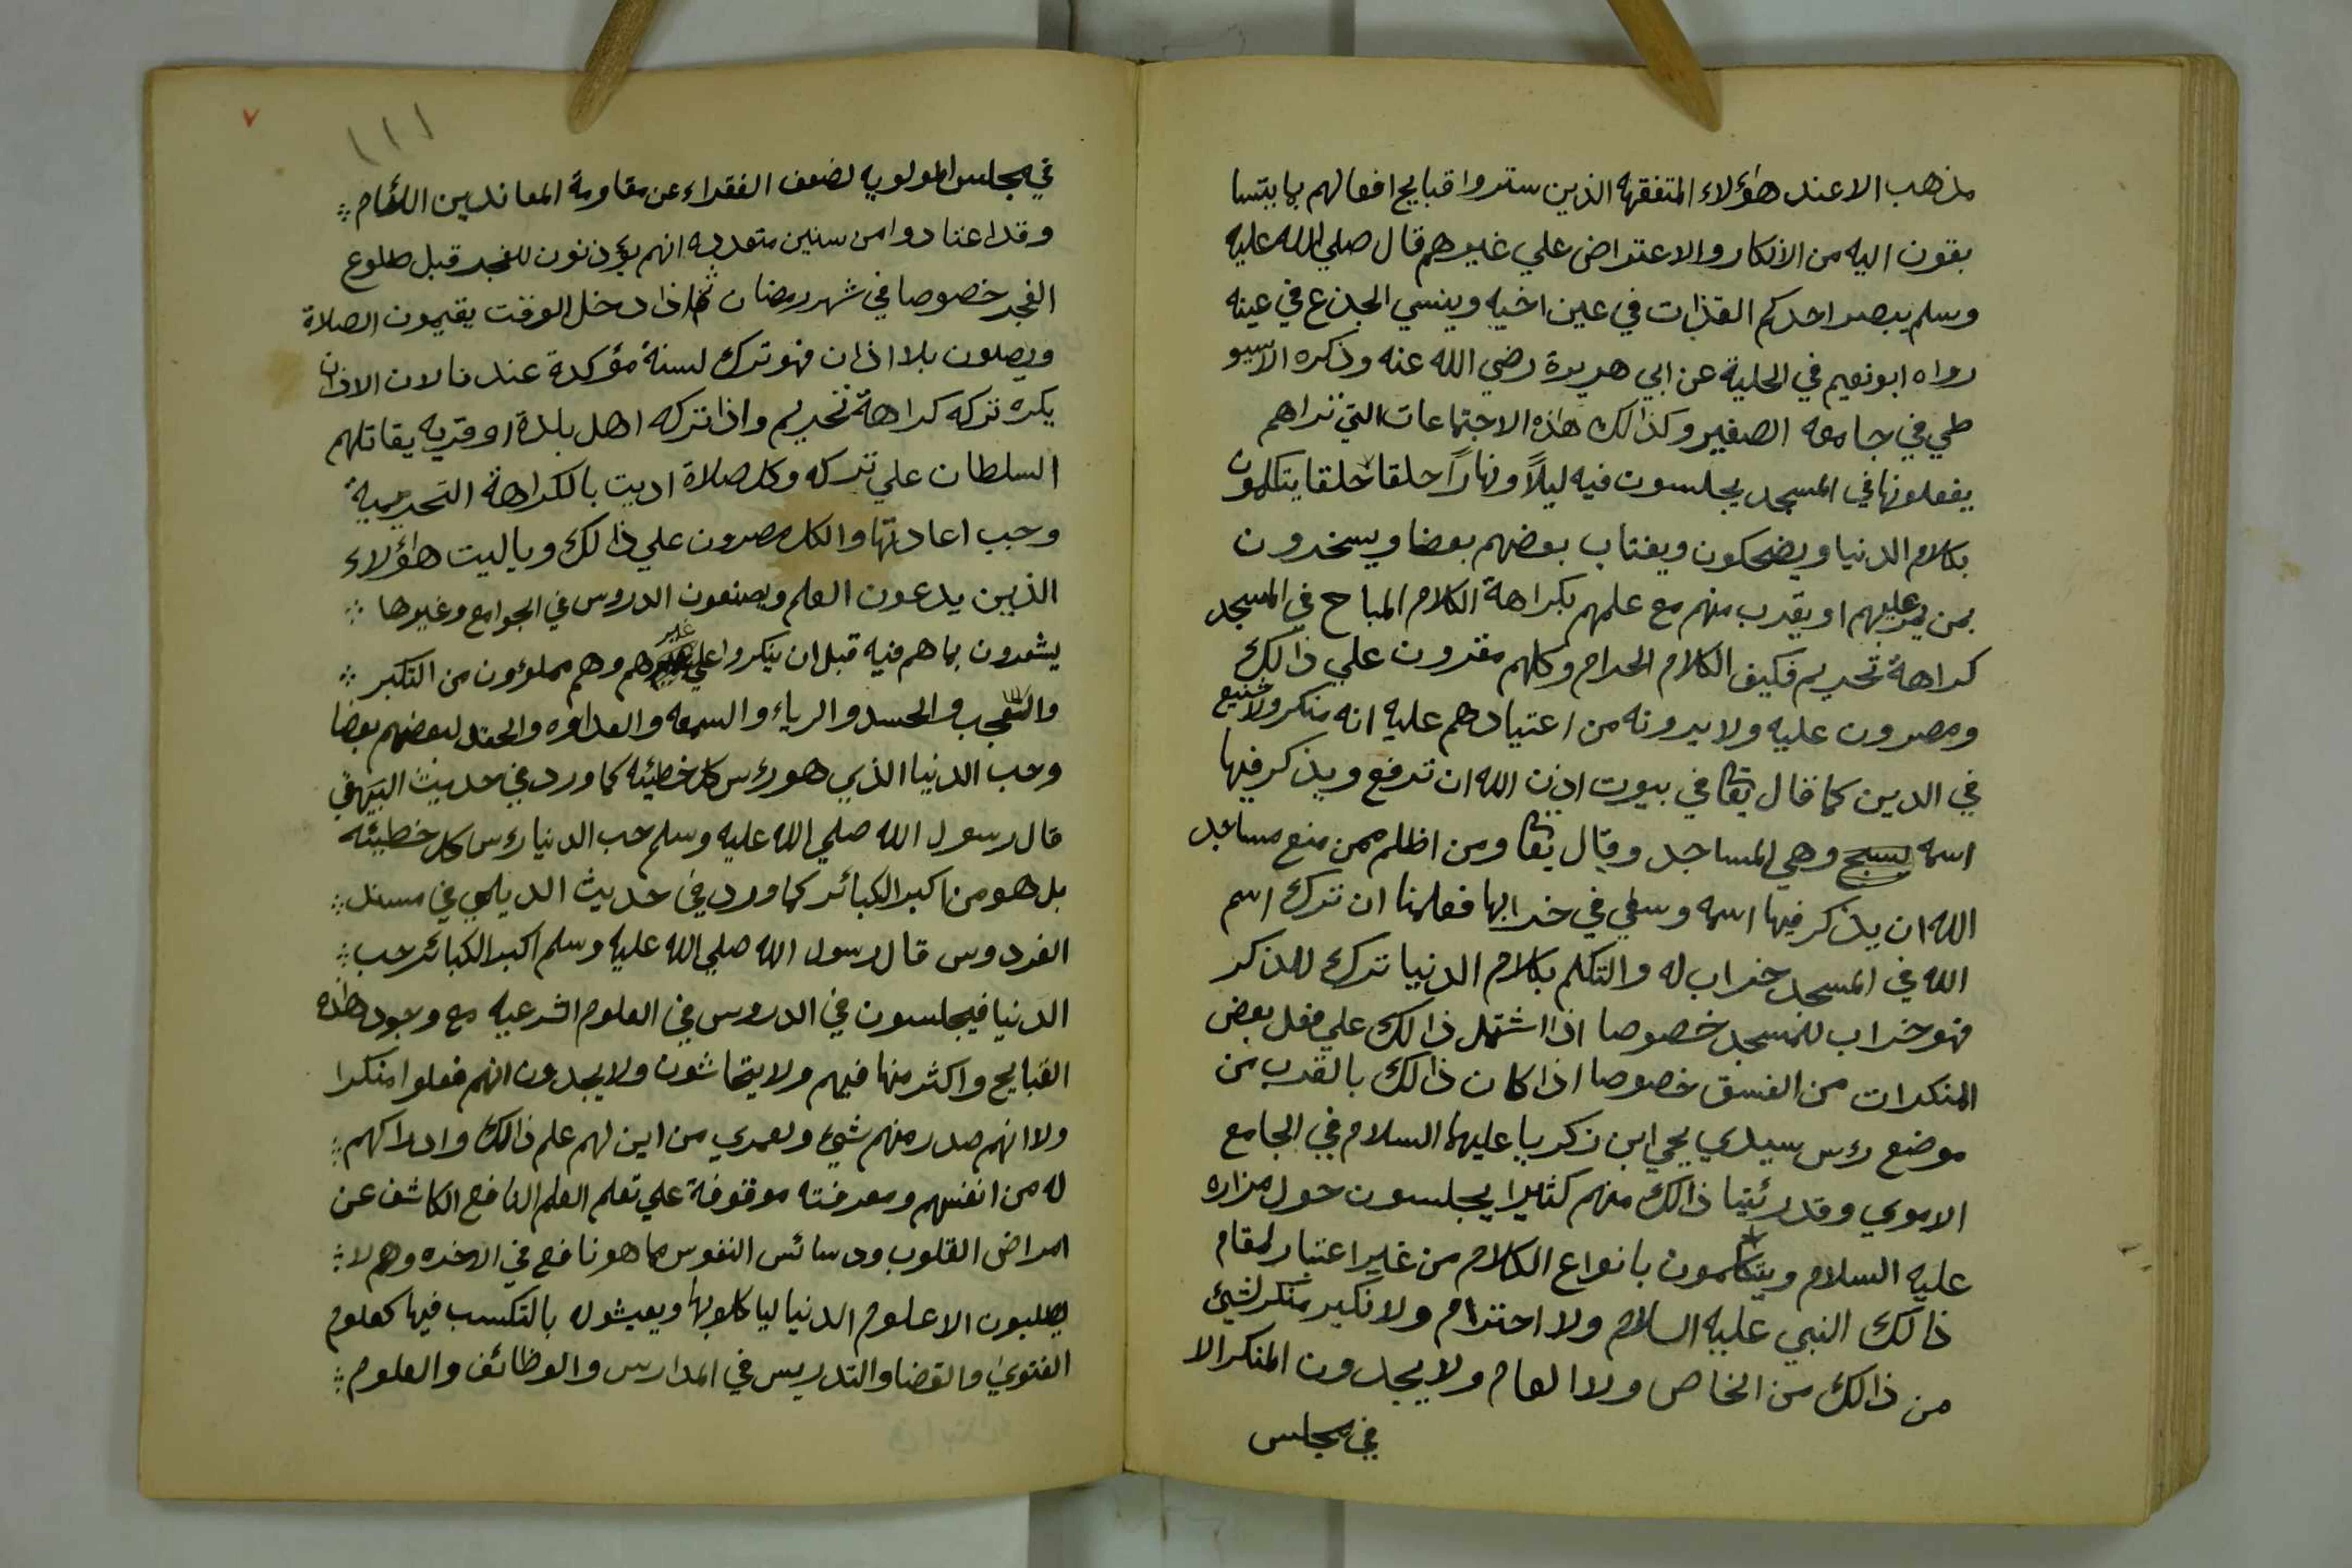 مذهب الا عند هٰؤلاء المتفقهه الذين ستروا قبايح افعالهم بما يتسا
بقون اليه من الانكار والاعتراض علي غيرهم قال صلي الله عليه
وسلم يبصر احدكم القذات في عين اخيه وينسي الجذع في عينه
رواه ابو نعيم في الحلية عن ابي هريرة رضي الله عنه وذكره الاسيو
طي في جامعه الصغير وكذالك هٰذه الاجتماعات التي نراهم
يفعلونها في المسجد يجلسون فيه ليلاً ونهاراً حلقا حلقا يتكلمون
بكلام الدنيا ويضحكون ويغتاب بعضهم بعضا ويسخرون
بمن يمر عليهم او يقرب منهم مع علمهم بكراهة الكلام المباح في المسجد
كراهة تحريم فكيف الكلام الحرام وكلهم مقرون علي ذالك
ومصرون عليه ولا يرونه من اعتيادهم عليه انه منكر ولا شنيع
في الدين كما قال تعا في بيوت اذن الله ان ترفع ويذكر فيها
اسمه يسبح وهي المساجد وقال تعا ومن اظلم ممن منع مساجد
الله ان يذكر فيها اسمه وسعي في خرابها فعلمنا ان ترك اسم
الله في المسجد خراب له والتكلم بكلام الدنيا ترك للذكر
فهو خراب للمسجد خصوصا اذا اشتمل ذالك علي فعل بعض
المنكرات من الفسق خصوصا اذا كان ذالك بالقرب من
موضع رءس سيدي يحي ابن زكريا عليهما السلام في الجامع
الاموي وقد رئينا ذالك منهم كثيرا يجلسون حول مزاره
عليه السلام ويتكلمون بانواع الكلام من غير اعتبار لمقام
ذالك النبي عليه السلام ولا احترام ولا نكير منكر لشيئ
من ذالك من الخاص ولا العام ولا يجدون المنكر الا
في مجلس
٧
١١١
في مجلس المولويه لضعف الفقراء عن مقاومة المعاندين اللئام
وقد اعتادوا من سنين متعدده انهم يؤذنون للفجر قبل طلوع
الفجر خصوصا في شهر رمضان ثم اذا دخل الوقت يقيمون الصلاة
ويصلون بلا اذان فهو ترك لسنة مؤكدة عندنا لان الاذان
يكره تركه كراهة تحريم واذا تركه اهل بلدة او قريه يقاتلهم
السلطان علي تركه وكل صلاة اديت بالكراهة التحريمية
وجب اعادتها والكل مصرون علي ذالك وياليت هٰؤلاء
الذين يدعون العلم ويصنعون الدروس في الجوامع وغيرها
يشعرون بما هم فيه قبل ان ينكروا علي غيرهم وهم مملؤون من التكبر
والعجب والحسد والرياء والسمعه والعداوه والحقد لبعضهم بعضا
وحب الدنيا الذي هو رءس كل خطيئه كما ورد في حديث البيهقي
قال رسول الله صلي الله عليه وسلم حب الدنيا رءس كل خطيئه
بل هو من اكبر الكبائر كما ورد في حديث الديلمي في مسند
الفردوس قال رسول الله صلي الله عليه وسلم اكبر الكبائر حب
الدنيا فيجلسون في الدروس في العلوم الشرعيه مع وجود هٰذه
القبايح واكثر منها فيهم ولا يتحاشون ولا يجدون انهم فعلوا منكرا
ولا انهم صدر منهم شيئ ولعمري من اين لهم علم ذالك وادراكهم
له من انفسهم ومعرفته موقوفة علي تعلم العلم النافع الكاشف عن
امراض القلوب ودسائس النفوس مما هو نافع في الاخره وهم لا
يطلبون الا علوم الدنيا لياكلوا بها ويعيشوا بالتكسب فيها كعلوم
الفتوي والقضا والتدريس في المدارس والوظائف والعلوم